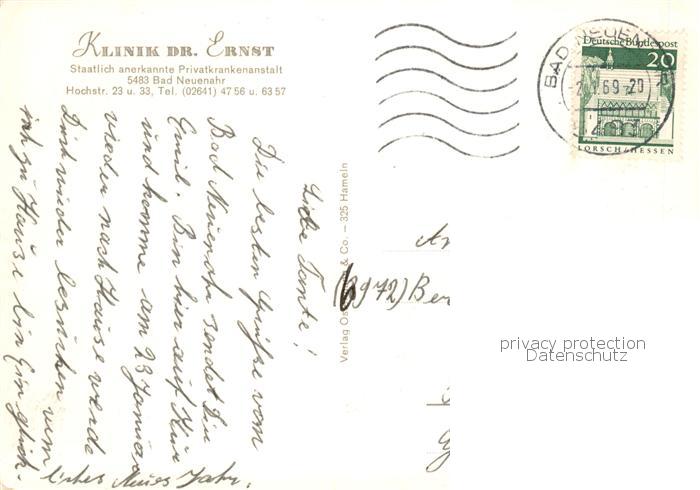 KLINIK DR. ERNST
Staatlich anerkannte Privatkrankenanstalt
5483 Bad Neuenahr
Hochstr. 23 u. 33, Tel. (02641) 47 56 u. 63 57
Liebe Tante!
Die besten Grüße vom
Bad Neuenahr sendet Dir
Emil. Bin hier auf Kur
und komme am 23 Januar
wieder nach Hause werde
Dich wieder besuchen wenn
ich zu Hause bin Ein glück-
liches Neues Jahr.
Verlag & Co. – 325 Hameln
An
(6972) Ber
BAD NEUEN
69-20
Deutsche Bundespost
20
LORSCH/HESSEN
privacy protection
Datenschutz